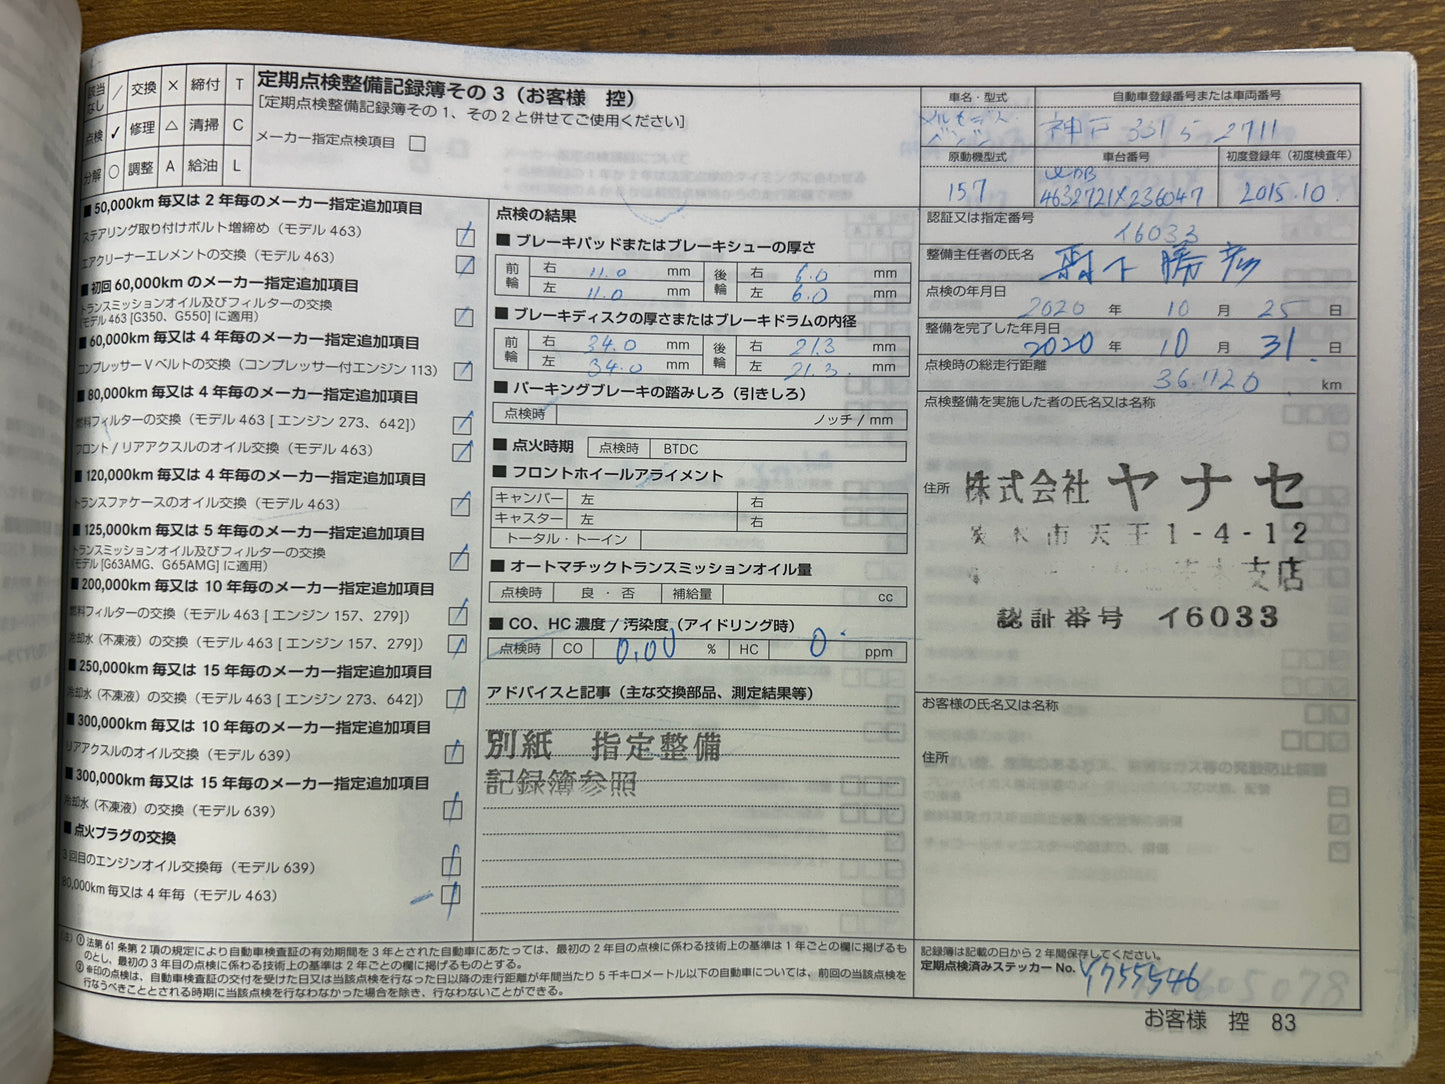 該当なし ／ 交換 × 締付 T
点検 ✓ 修理 △ 清掃 C
分解 ○ 調整 A 給油 L
定期点検整備記録簿その3（お客様 控）
［定期点検整備記録簿その1、その2と併せてご使用ください］
メーカー指定点検項目 □
■50,000km毎又は2年毎のメーカー指定追加項目
ステアリング取り付けボルト増締め（モデル463）
エアクリーナーエレメントの交換（モデル463）
■初回60,000kmのメーカー指定追加項目
トランスミッションオイル及びフィルターの交換
（モデル463 [G350、G550] に適用）
■60,000km毎又は4年毎のメーカー指定追加項目
コンプレッサーVベルトの交換（コンプレッサー付エンジン113）
■80,000km毎又は4年毎のメーカー指定追加項目
燃料フィルターの交換（モデル463 [エンジン273、642]）
フロント/リアアクスルのオイル交換（モデル463）
■120,000km毎又は4年毎のメーカー指定追加項目
トランスファケースのオイル交換（モデル463）
■125,000km毎又は5年毎のメーカー指定追加項目
トランスミッションオイル及びフィルターの交換
（モデル[G63AMG、G65AMG] に適用）
■200,000km毎又は10年毎のメーカー指定追加項目
燃料フィルターの交換（モデル463 [エンジン157、279]）
冷却水（不凍液）の交換（モデル463 [エンジン157、279]）
■250,000km毎又は15年毎のメーカー指定追加項目
冷却水（不凍液）の交換（モデル463 [エンジン273、642]）
■300,000km毎又は10年毎のメーカー指定追加項目
リアアクスルのオイル交換（モデル639）
■300,000km毎又は15年毎のメーカー指定追加項目
冷却水（不凍液）の交換（モデル639）
■点火プラグの交換
3回目のエンジンオイル交換毎（モデル639）
80,000km毎又は4年毎（モデル463）
点検の結果
■ブレーキパッドまたはブレーキシューの厚さ
前輪 右 11.0 mm 後輪 右 6.0 mm
左 11.0 mm 左 6.0 mm
■ブレーキディスクの厚さまたはブレーキドラムの内径
前輪 右 34.0 mm 後輪 右 21.3 mm
左 34.0 mm 左 21.3 mm
■パーキングブレーキの踏みしろ（引きしろ）
点検時 ノッチ / mm
■点火時期 点検時 BTDC
■フロントホイールアライメント
キャンバー 左 右
キャスター 左 右
トータル・トーイン
■オートマチックトランスミッションオイル量
点検時 良・否 補給量 cc
■CO、HC濃度/汚染度（アイドリング時）
点検時 CO 0.00 % HC 0 ppm
アドバイスと記事（主な交換部品、測定結果等）
別紙 指定整備
記録簿参照
車名・型式 自動車登録番号または車両番号
メルセデス
ベンツ 神戸 331 5 2711
原動機型式 車台番号 初度登録年（初度検査年）
157 WDB
4632721X236047 2015.10
認証又は指定番号
イ6033
整備主任者の氏名
点検の年月日
2020 年 10 月 25 日
整備を完了した年月日
2020 年 10 月 31 日
点検時の総走行距離
km
点検整備を実施した者の氏名又は名称
住所 株式会社ヤナセ
茨木市天王1-4-12
支店
認証番号 イ6033
お客様の氏名又は名称
住所
（注）①法第61条第2項の規定により自動車検査証の有効期間を3年とされた自動車にあたっては、最初の2年目の点検に係わる技術上の基準は1年ごとの欄に掲げるも
のとし、最初の3年目の点検に係わる技術上の基準は2年ごとの欄に掲げるものとする。
②※印の点検は、自動車検査証の交付を受けた日又は当該点検を行なった日以降の走行距離が年間当たり5千キロメートル以下の自動車については、前回の当該点検を
行なうべきこととされる時期に当該点検を行なわなかった場合を除き、行なわないことができる。
記録簿は記載の日から2年間保存してください。
定期点検済みステッカーNo. Y7555546
お客様 控 83